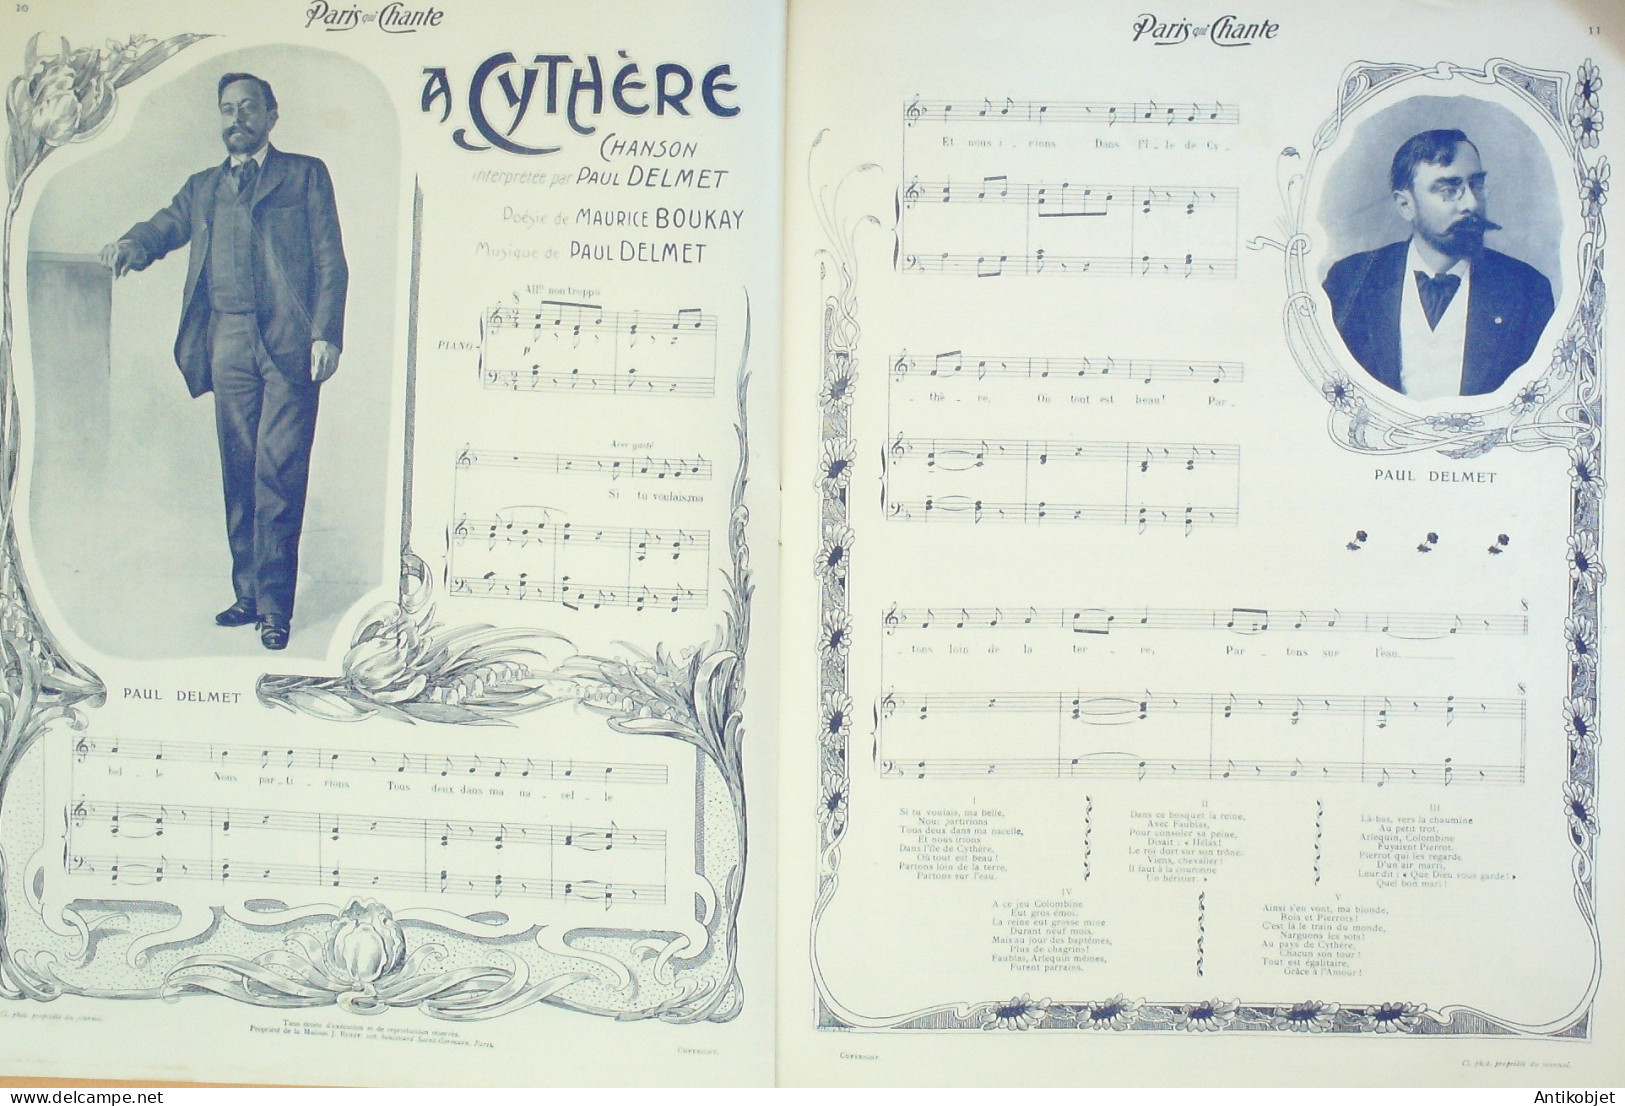 10
Paris qui Chante
A CYTHÈRE
CHANSON
interprétée par PAUL DELMET
Poésie de MAURICE BOUKAY
Musique de PAUL DELMET
All⁰ non troppo
PIANO
p
Avec gaité
Si tu voulais, ma
PAUL DELMET
bel - le Nous par - ti - rions Tous deux dans ma na - cel - le
Cl. phot. propriété du journal.
Tous droits d'exécution et de reproduction réservés.
Propriété de la Maison J. boulevard Saint-Germain, Paris.
COPYRIGHT.
Paris qui Chante
11
Et nous i - rions Dans l'î - le de Cy -
- thè - re, Où tout est beau! Par -
PAUL DELMET
- tons loin de la ter - re, Par - tons sur l'eau.
I
Si tu voulais, ma belle,
Nous partirions
Tous deux dans ma nacelle,
Et nous irions
Dans l'île de Cythère,
Où tout est beau!
Partons loin de la terre,
Partons sur l'eau.
II
Dans ce bosquet la reine,
Avec Faublas,
Pour consoler sa peine,
Disait : « Hélas!
Le roi dort sur son trône.
Viens, chevalier!
Il faut à la couronne
Un héritier. »
III
Là-bas, vers la chaumine
Au petit trot,
Arlequin, Colombine
Fuyaient Pierrot.
Pierrot qui les regarde
D'un air marri,
Leur dit : « Que Dieu vous garde! »
Quel bon mari!
IV
A ce jeu Colombine
Eut gros émoi.
La reine eut grosse mine
Durant neuf mois.
Mais au jour des baptêmes,
Plus de chagrins!
Faublas, Arlequin mêmes,
Furent parrains.
V
Ainsi s'en vont, ma blonde,
Rois et Pierrots!
C'est là le train du monde,
Narguons les sots!
Au pays de Cythère,
Chacun son tour!
Tout est égalitaire,
Grâce à l'Amour!
COPYRIGHT.
Cl. phot. propriété du journal.
Antikobjet